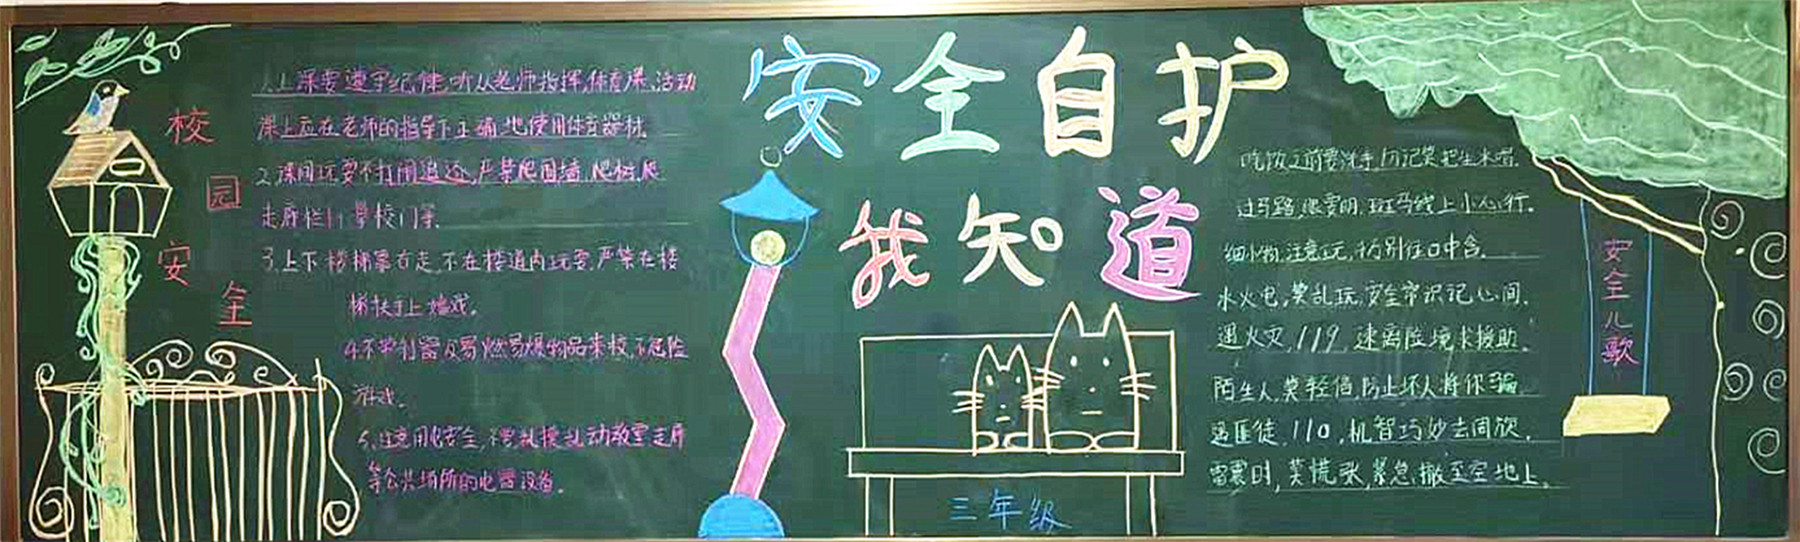 校园安全
1.上课要遵守纪律,听从老师指挥,体育课、活动
课上应在老师的指导下正确地使用体育器材.
2.课间玩耍不打闹追逐,严禁爬围墙、爬树、爬
走廊栏杆、学校门等.
3.上下楼梯靠右走,不在楼道内玩耍,严禁在楼
梯扶手上嬉戏.
4.不带利器及易燃易爆物品来校,不危险
游戏.
5.注意用电安全,不乱摸乱动教室走廊
等公共场所的电器设备.
安全自护
我知道
三年级
吃饭之前要洗手,切记莫把生水喝.
过马路,眼要明,斑马线上小心行.
细小物,注意玩,切别往口中含.
水火电,莫乱玩,安全常识记心间.
遇火灾,119,速离险境求援助.
陌生人,莫轻信,防止坏人将你骗.
遇匪徒,110,机智巧妙去周旋.
雷震时,莫慌张,紧急撤至空地上.
安全儿歌